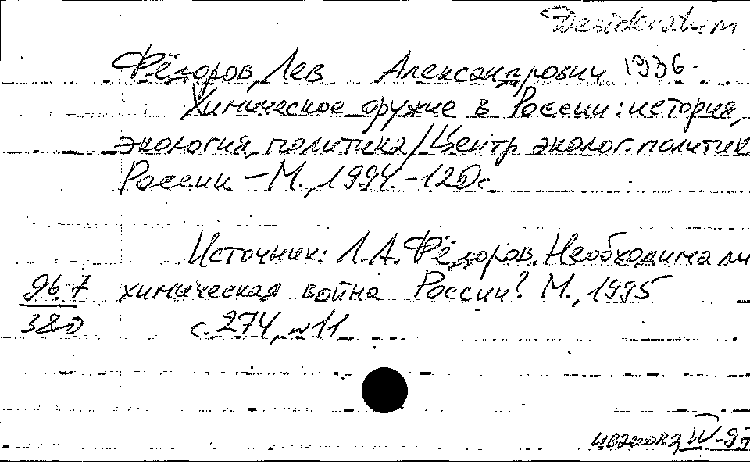 Desideratum
Фёдоров, Лев Александрович 1936-
Химическое оружие в России: история,
экология, политика / Центр эколог. политик
России - М., 1994. - 120с
Источник: Л.А. Фёдоров. Необходима ли
967 химическая война России? М., 1995
380 с. 274, №11
IV-97